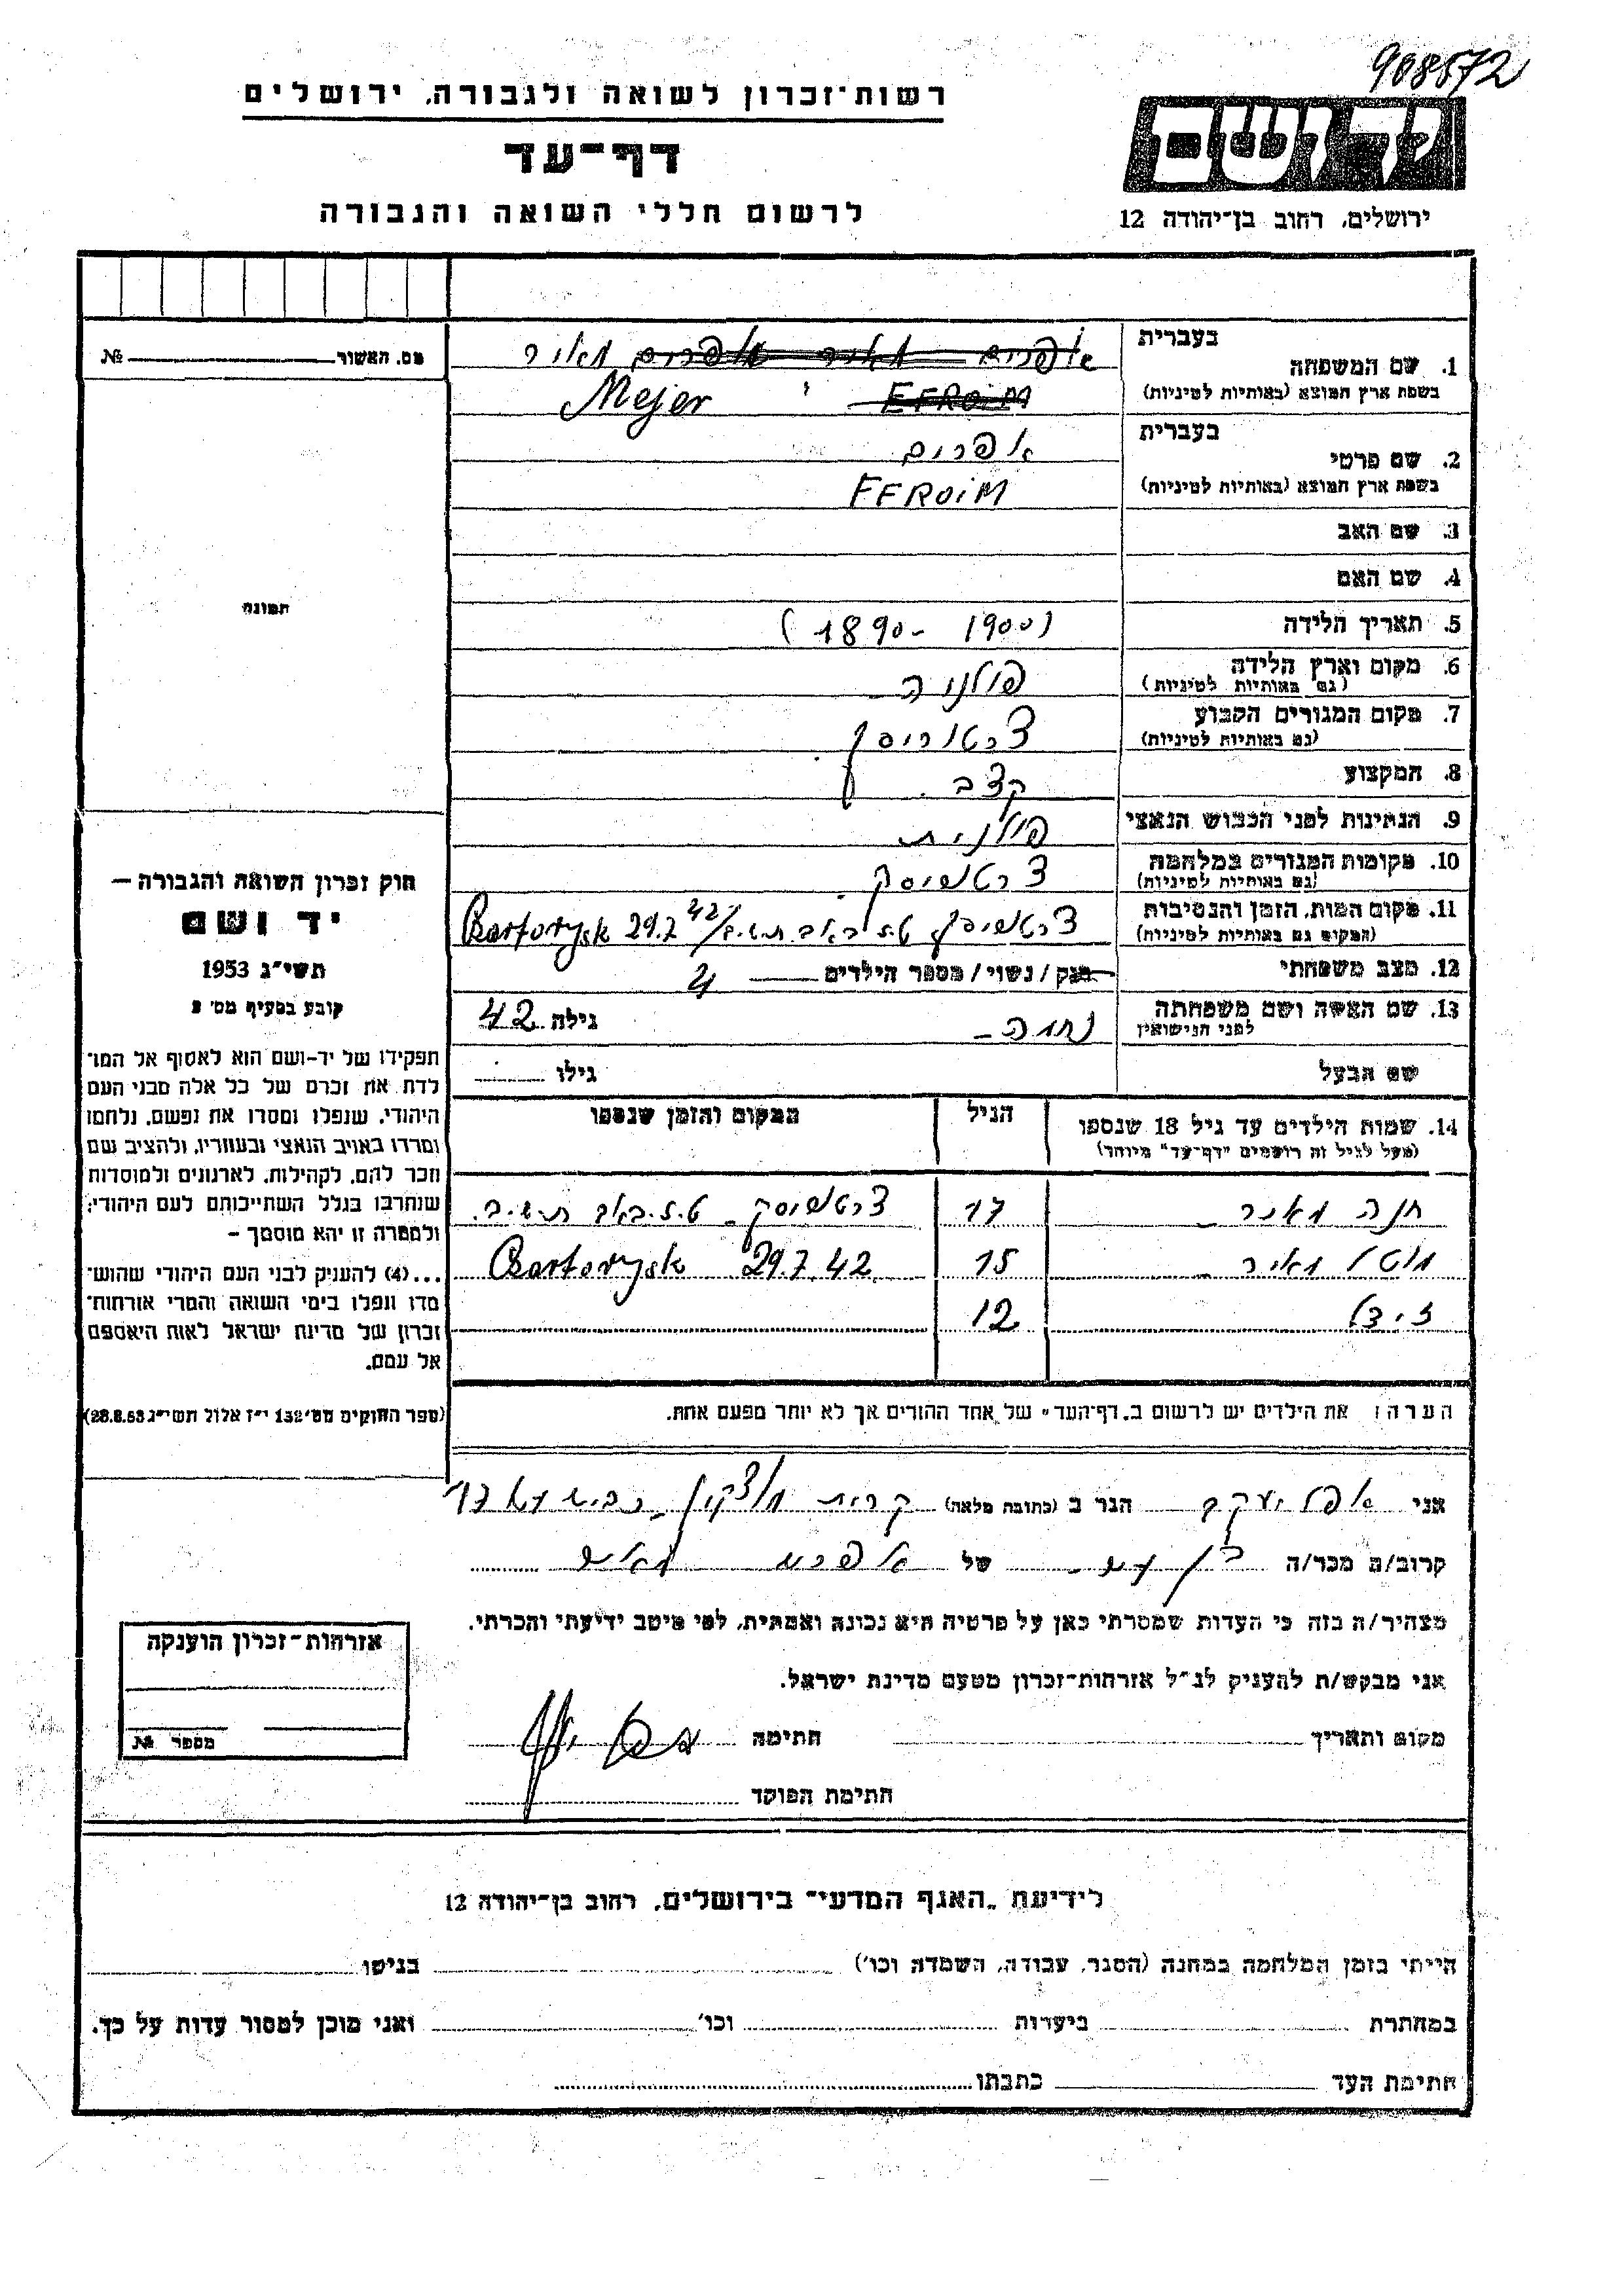 908572
רשות־זכרון לשואה ולגבורה, ירושלים
דף־עד
לרשום חללי השואה והגבורה
יד ושם
ירושלים, רחוב בן־יהודה 12
מס. האשור № 
בעברית
1. שם המשפחה
אפרים מאיר אפרים מאיר
בשפת ארץ המוצא (באותיות לטיניות)
Mejer EFROIM
בעברית
2. שם פרטי
אפרים
בשפת ארץ המוצא (באותיות לטיניות)
EFROIM
3. שם האב
4. שם האם
5. תאריך הלידה
(1890 - 1900)
6. מקום וארץ הלידה
(גם באותיות לטיניות)
פולניה
7. מקום המגורים הקבוע
(גם באותיות לטיניות)
צרטוריסק
8. המקצוע
קצב
9. הנתינות לפני הכבוש הנאצי
פולנית
10. מקומות המגורים במלחמה
(גם באותיות לטיניות)
צרטוריסק
11. מקום המות, הזמן והנסיבות
(המקום גם באותיות לטיניות)
צרטוריסק ט.ז. באב תש.ב. / Czartorysk 29.7 42
12. מצב משפחתי
רווק / נשוי / מספר הילדים 4
13. שם האשה ושם משפחתה
לפני הנישואין
נחמה - גילה 42
שם הבעל גילו
14. שמות הילדים עד גיל 18 שנספו
(מעל לגיל זה רושמים "דף־עד" מיוחד)
הגיל
המקום והזמן שנספו
חנה מאיר 17 צרטוריסק ט.ז. באב תש.ב.
מוטל מאיר 15 Czartorysk 29.7.42
זיידל 12
הערה: את הילדים יש לרשום ב„דף־העד" של אחד ההורים אך לא יותר מפעם אחת.
תמונה
חוק זכרון השואה והגבורה —
יד ושם
תשי"ג 1953
קובע בסעיף מס' 2
תפקידו של יד־ושם הוא לאסוף אל המו־
לדת את זכרם של כל אלה מבני העם
היהודי, שנפלו ומסרו את נפשם, נלחמו
ומרדו באויב הנאצי ובעוזריו, ולהציב שם
וזכר להם, לקהילות, לארגונים ולמוסדות
שנחרבו בגלל השתייכותם לעם היהודי;
ולמטרה זו יהא מוסמך —
...(4) להעניק לבני העם היהודי שהוש־
מדו ונפלו בימי השואה והמרי אזרחות־
זכרון של מדינת ישראל לאות היאספם
אל עמם.
(ספר החוקים מס' 132 י"ז אלול תשי"ג 28.8.53)
אני יעקב הגר ב (כתובת מלאה) קרית מוצקין
קרוב/ה מכר/ה בן של אפרים מאיר
מצהיר/ה בזה כי העדות שמסרתי כאן על פרטיה היא נכונה ואמתית, לפי מיטב ידיעתי והכרתי.
אני מבקש/ת להעניק לנ"ל אזרחות־זכרון מטעם מדינת ישראל.
מקום ותאריך חתימה
חתימת הפוקד
אזרחות־זכרון הוענקה
מספר №
לידיעת „האגף המדעי" בירושלים, רחוב בן־יהודה 12
הייתי בזמן המלחמה במחנה (הסגר, עבודה, השמדה וכו') בגיטו
במחתרת ביערות וכו' ואני מוכן למסור עדות על כך.
חתימת העד כתבתו